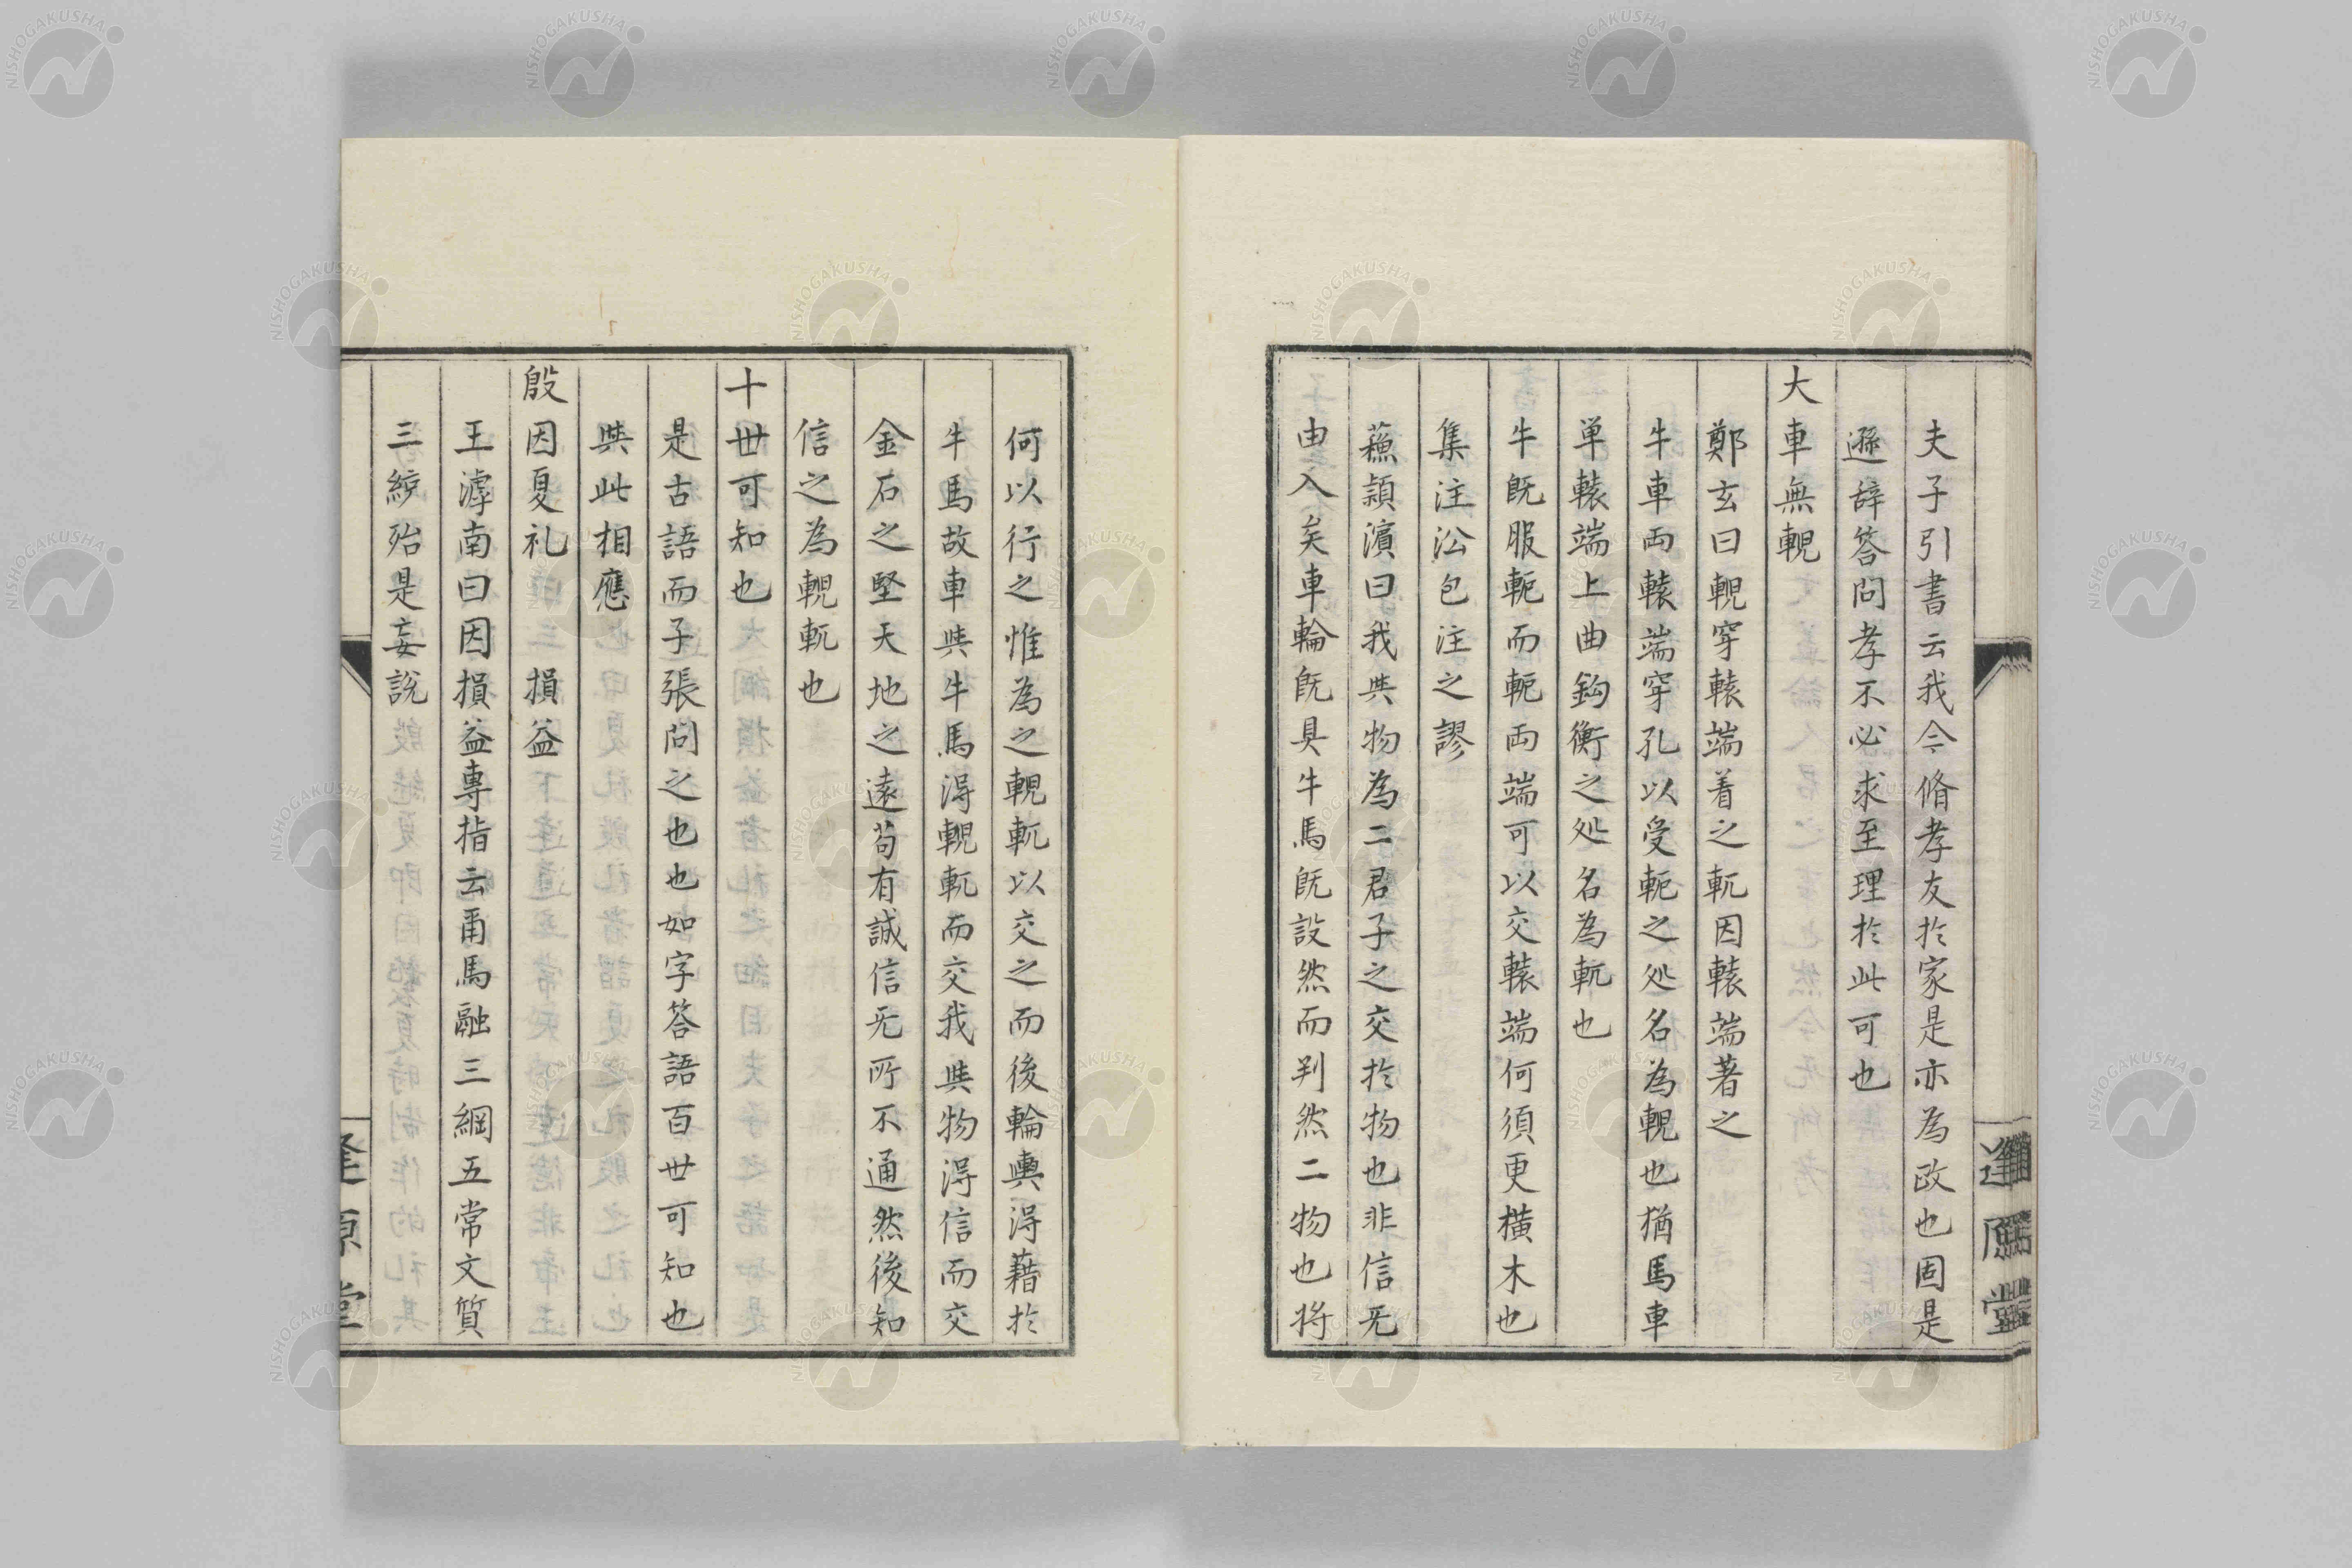 夫子引書云我今脩孝友於家是亦為政也固是
遜辞答問孝不必求至理於此可也
大車無輗
鄭玄曰輗穿轅端着之軏因轅端著之
牛車両轅端穿孔以受軛之処名為輗也猶馬車
単轅端上曲鈎衡之処名為軏也
牛既服軛而軛両端可以交轅端何須更横木也
集注㳂包注之謬
蘓頴濱曰我与物為二君子之交於物也非信无
由入矣車輪既具牛馬既設然而判然二物也将
何以行之惟為之輗軏以交之而後輪輿得藉於
牛馬故車与牛馬得輗軏而交我与物得信而交
金石之堅天地之遠苟有誠信无所不通然後知
信之為輗軏也
十世可知也
是古語而子張問之也也如字答語百世可知也
与此相應
殷因夏礼　損益
王滹南曰因損益専指云甬馬融三綱五常文質
三綂殆是妄説
逢原堂
NISHOGAKUSHA